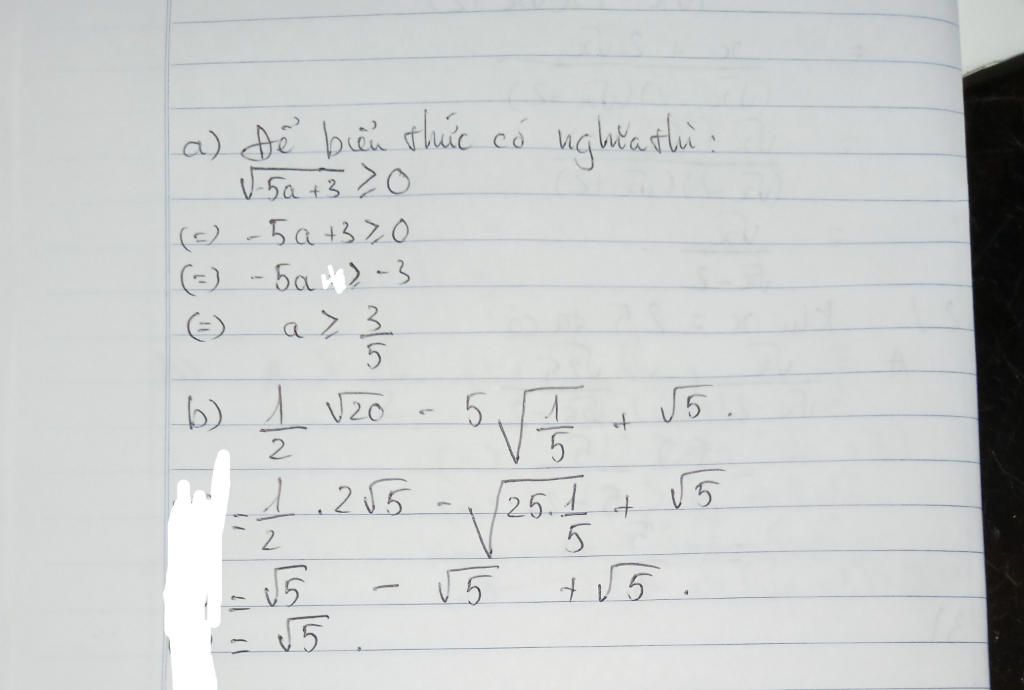 a) Để biểu thức có nghĩa thì:
√-5a+3 ≥ 0
(=) -5a+3 ≥ 0
(=) -5a ≥ -3
(=) a ≥ 3/5
b) 1/2 √20 - 5 √1/5 + √5.
= 1/2 . 2√5 - √25.1/5 + √5
= √5 - √5 + √5.
= √5.